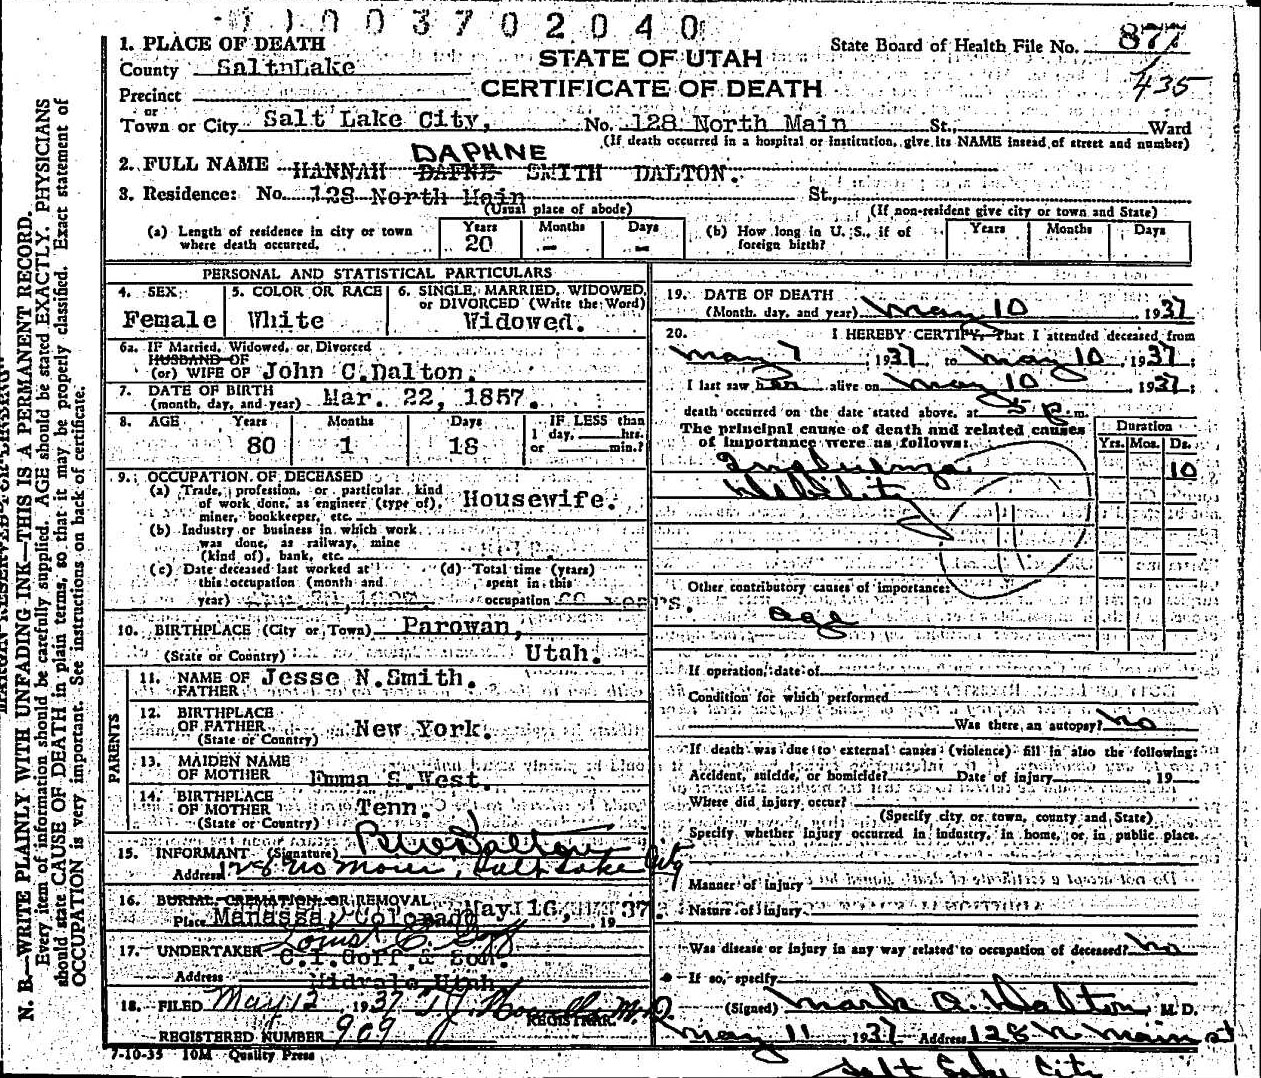 003702040
1. PLACE OF DEATH
State Board of Health File No. 877
STATE OF UTAH
County Salt Lake
435
CERTIFICATE OF DEATH
Precinct
or
Town or City Salt Lake City, No. 128 North Main St., Ward
(If death occurred in a hospital or institution, give its NAME instead of street and number)
DAPHNE
2. FULL NAME HANNAH DAFNE SMITH DALTON.
3. Residence: No. 128 North Main St.,
(Usual place of abode) (If non-resident give city or town and State)
(a) Length of residence in city or town where death occurred. Years 20 Months - Days -
(b) How long in U. S., if of foreign birth? Years Months Days
PERSONAL AND STATISTICAL PARTICULARS
4. SEX Female
5. COLOR OR RACE White
6. SINGLE, MARRIED, WIDOWED, or DIVORCED (Write the Word) Widowed.
6a. IF Married, Widowed, or Divorced
HUSBAND OF
(or) WIFE OF John C.Dalton.
7. DATE OF BIRTH
(month, day, and year) Mar. 22, 1857.
8. AGE Years 80 Months 1 Days 18 IF LESS than 1 day, hrs. or min.?
9. OCCUPATION OF DECEASED
(a) Trade, profession, or particular kind
of work done, as engineer (type of),
miner, bookkeeper, etc. Housewife.
(b) Industry or business in which work
was done, as railway, mine
(kind of), bank, etc.
(c) Date deceased last worked at
this occupation (month and
year)
(d) Total time (years)
spent in this
occupation years.
10. BIRTHPLACE (City or Town) Parowan,
(State or Country) Utah.
PARENTS
11. NAME OF FATHER Jesse N.Smith.
12. BIRTHPLACE OF FATHER
(State or Country) New York.
13. MAIDEN NAME OF MOTHER Emma S.West.
14. BIRTHPLACE OF MOTHER
(State or Country) Tenn.
15. INFORMANT (Signature) Dalton
Address 128 No Main, Salt Lake City
16. BURIAL, CREMATION, OR REMOVAL
Place Manassa, Colorado May 16, 1937.
17. UNDERTAKER Louis E. Goff
C.T.Goff & Son.
Address Midvale Utah
18. FILED May 12 1937 M.D.
REGISTRAR.
REGISTERED NUMBER 909
7-10-35 10M Quality Press
19. DATE OF DEATH
(Month, day, and year) May 10, 1937
20. I HEREBY CERTIFY, That I attended deceased from
May 7, 1937 to May 10, 1937;
I last saw her alive on May 10, 1937;
death occurred on the date stated above, at 5 P. m.
The principal cause of death and related causes
of importance were as follows:
Duration
Yrs. Mos. Ds.
Influenza 10
Debility
11
Other contributory causes of importance:
age
If operation, date of
Condition for which performed
Was there an autopsy? No
If death was due to external causes (violence) fill in also the following:
Accident, suicide, or homicide? Date of injury 19
Where did injury occur?
(Specify city or town, county and State)
Specify whether injury occurred in industry, in home, or in public place.
Manner of injury
Nature of injury
Was disease or injury in any way related to occupation of deceased? No
If so, specify
(Signed) Mark A. Dalton, M. D.
May 11, 1937 Address 128 N Main st
Salt Lake City
N. B.—WRITE PLAINLY WITH UNFADING INK—THIS IS A PERMANENT RECORD.
Every item of information should be carefully supplied. AGE should be stated EXACTLY. PHYSICIANS
should state CAUSE OF DEATH in plain terms, so that it may be properly classified. Exact statement of
OCCUPATION is very important. See instructions on back of certificate.